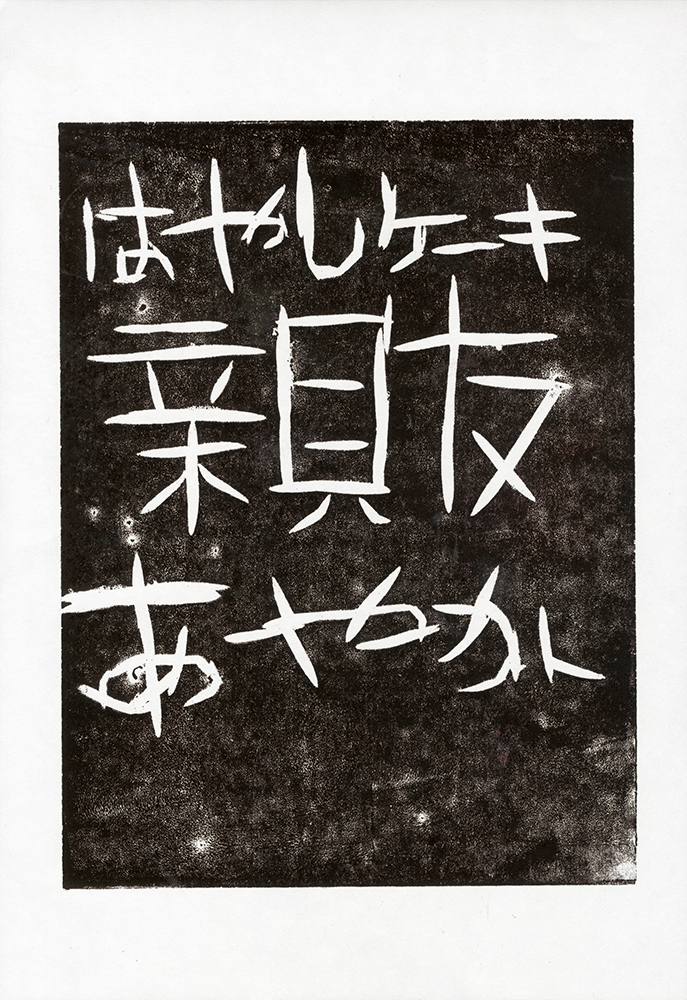 はやしケーキ
親友
あやか